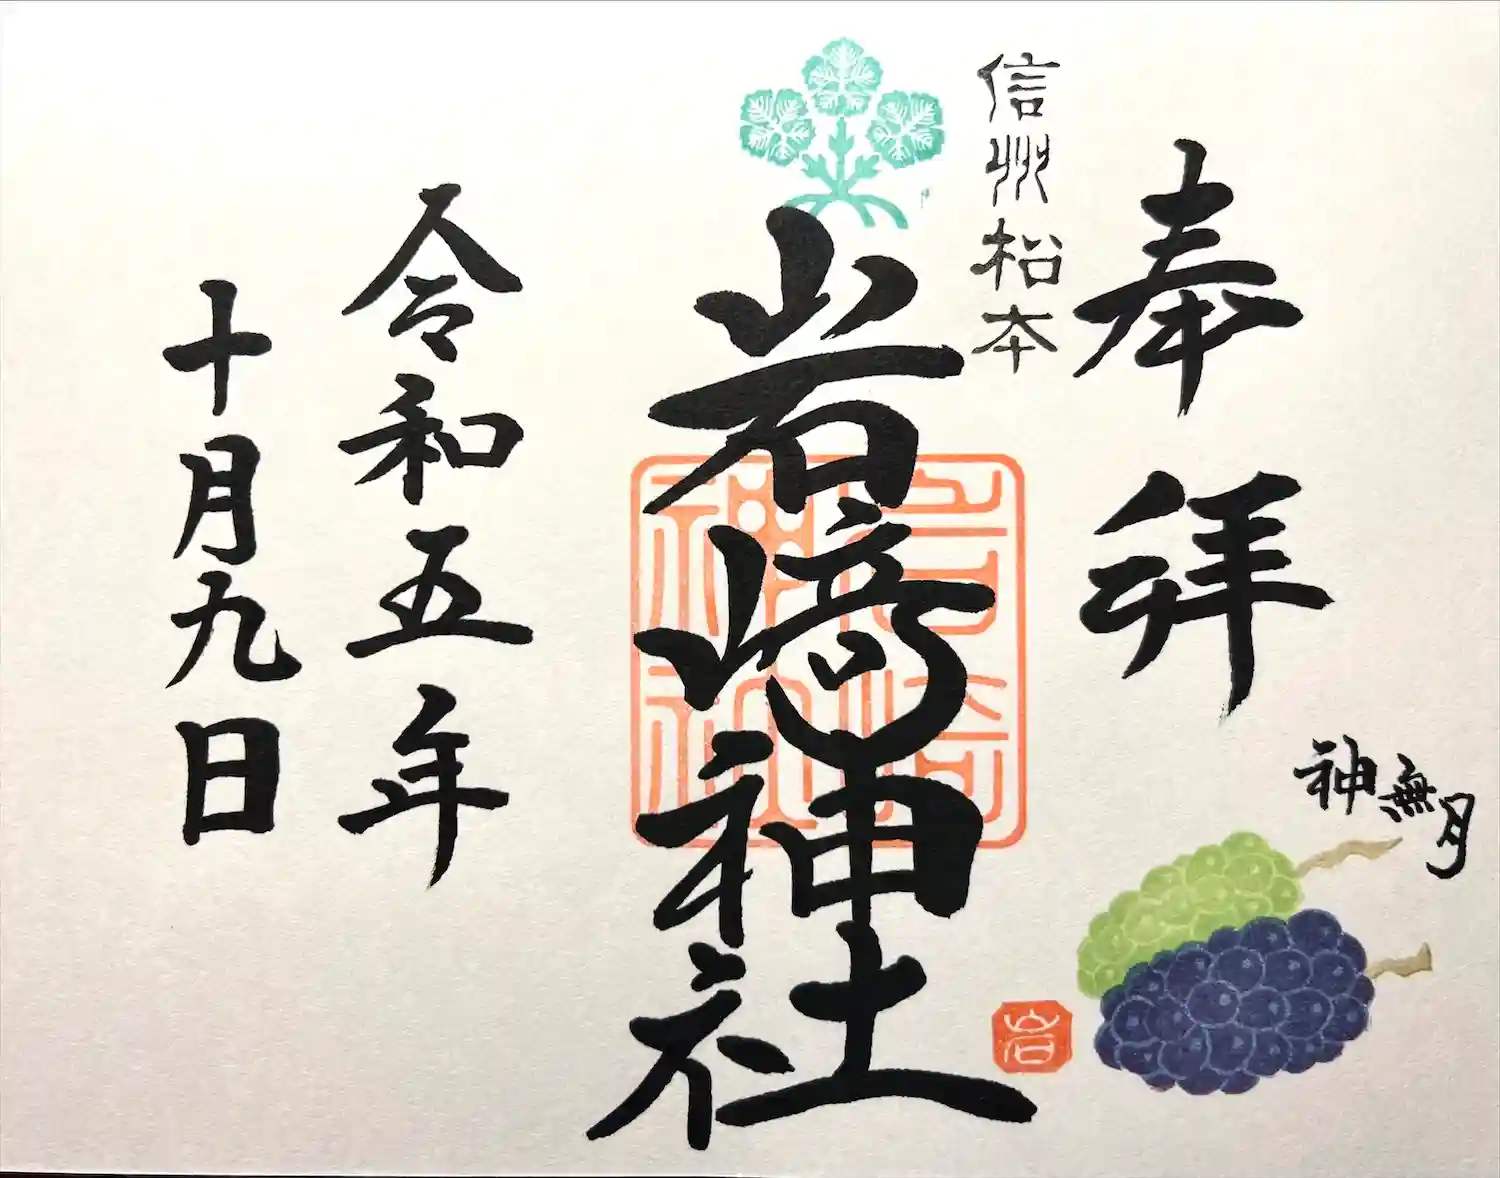 奉拝
神無月
信州松本
岩﨑神社
岩崎神社
岩
令和五年
十月九日